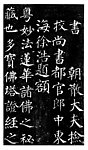 書　朝散大夫撿
校尚書都官郎中東
海徐浩題額
粤妙法蓮華諸佛之秘
藏也多寶佛塔證經之